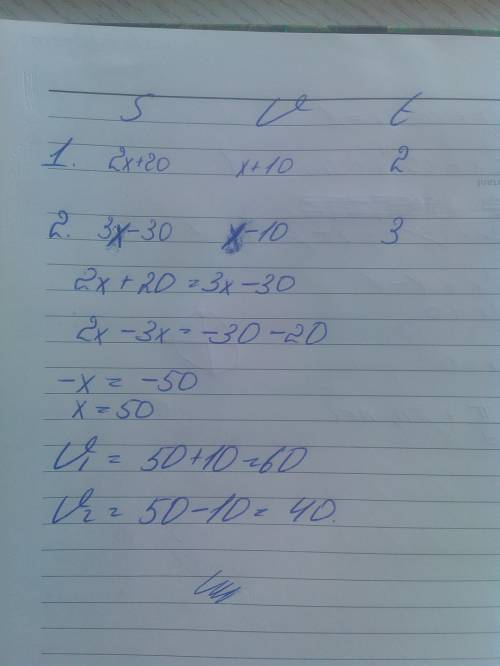 S V t
1. 2x+20 x+10 2
2. 3x-30 x-10 3
2x+20=3x-30
2x-3x=-30-20
-x=-50
x=50
V₁=50+10=60
V₂=50-10=40.